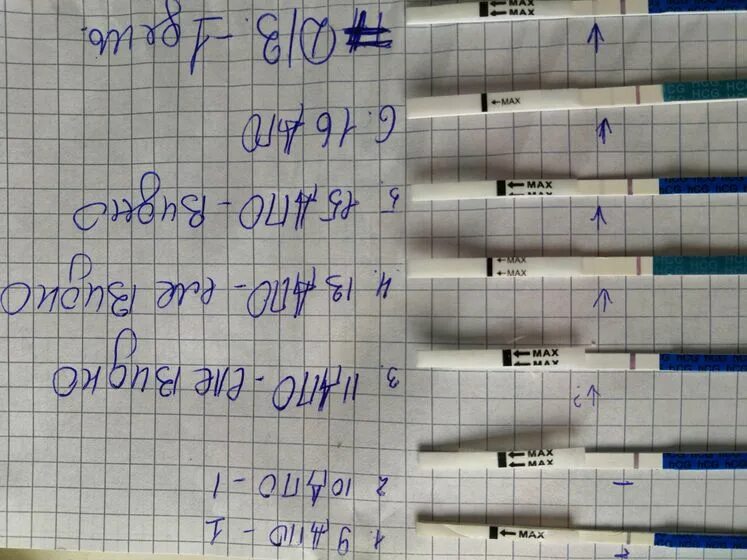 1. 9 ДПО - 1
MAX
2. 10 ДПО - 1
MAX
MAX
hCG hCG hCG
3. 11 ДПО - еле видно
MAX
MAX
hCG hCG hCG
4. 13 ДПО - еле видно
MAX
MAX
5. 15 ДПО - видно
MAX
MAX
hCG hCG hCG
6. 16 ДПО
MAX
HCG HCG
Д/З. - 1 день.
MAX
MAX